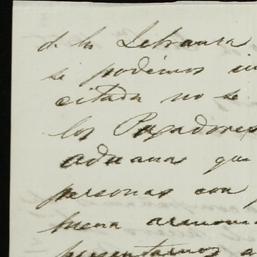 de la Libranza
se podemos
citada no se
los Pagadores
aduanas que
personas con
buena armon
presentarnos a